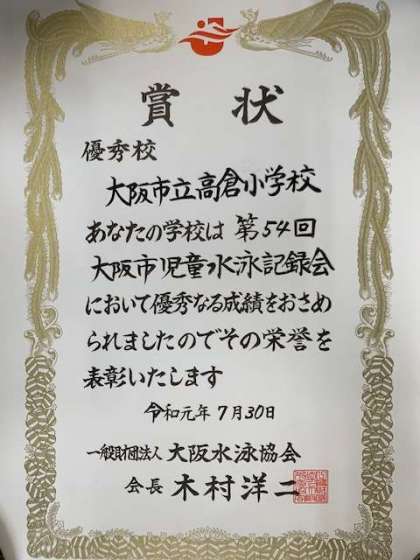 賞状
優秀校
大阪市立高倉小学校
あなたの学校は第54回
大阪市児童水泳記録会
において優秀なる成績をおさめ
られましたのでその栄誉を
表彰いたします
令和元年7月30日
一般財団法人大阪水泳協会
会長 木村洋二